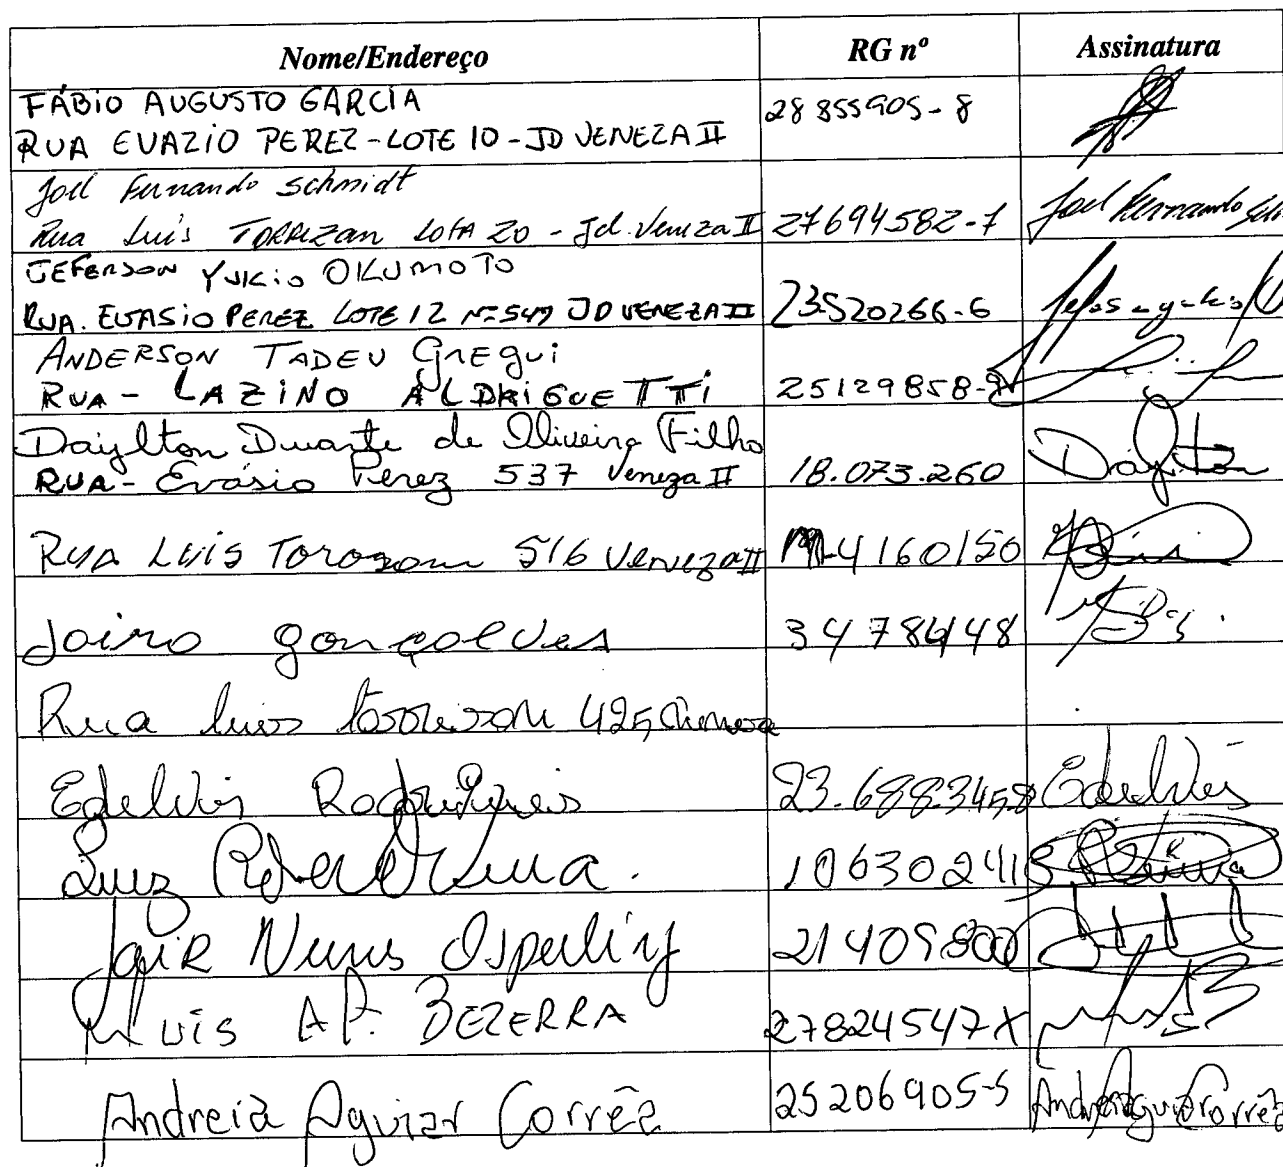 Nome/Endereço RG nº Assinatura
FÁBIO AUGUSTO GARCIA 28855905-8
RUA EVAZIO PEREZ-LOTE 10-JD VENEZA II
Joel Fernando Schmidt
Rua Luis TORREZAN LOTA 20 - Jd. Veneza II 27694582-1 Joel Fernando
JEFERSON YUKIO OKUMOTO
RUA. EVASIO PEREZ LOTE 12 Nº 549 JD VENEZA II 23520266-6
ANDERSON TADEU GREGUI
RUA - LAZINO ALDRIGUETTI 25129858-
Daylton Duarte de Oliveira Filho
RUA- Evásio Perez 537 Veneza II 18.073.260 Daylton
RUA LUIS 516 Veneza II M-4160150
Jairo gonçalves 34784448
Rua luis 425
Edelvis Rodrigues 23.6883458 Edelvis
Luiz Lima. 106302418
JaiR Nunes 21409800
LUIS AP. BEZERRA 27824547X
Andreia Aguiar Corrêa 25206905-5 Andreia Aguiar Corrêa